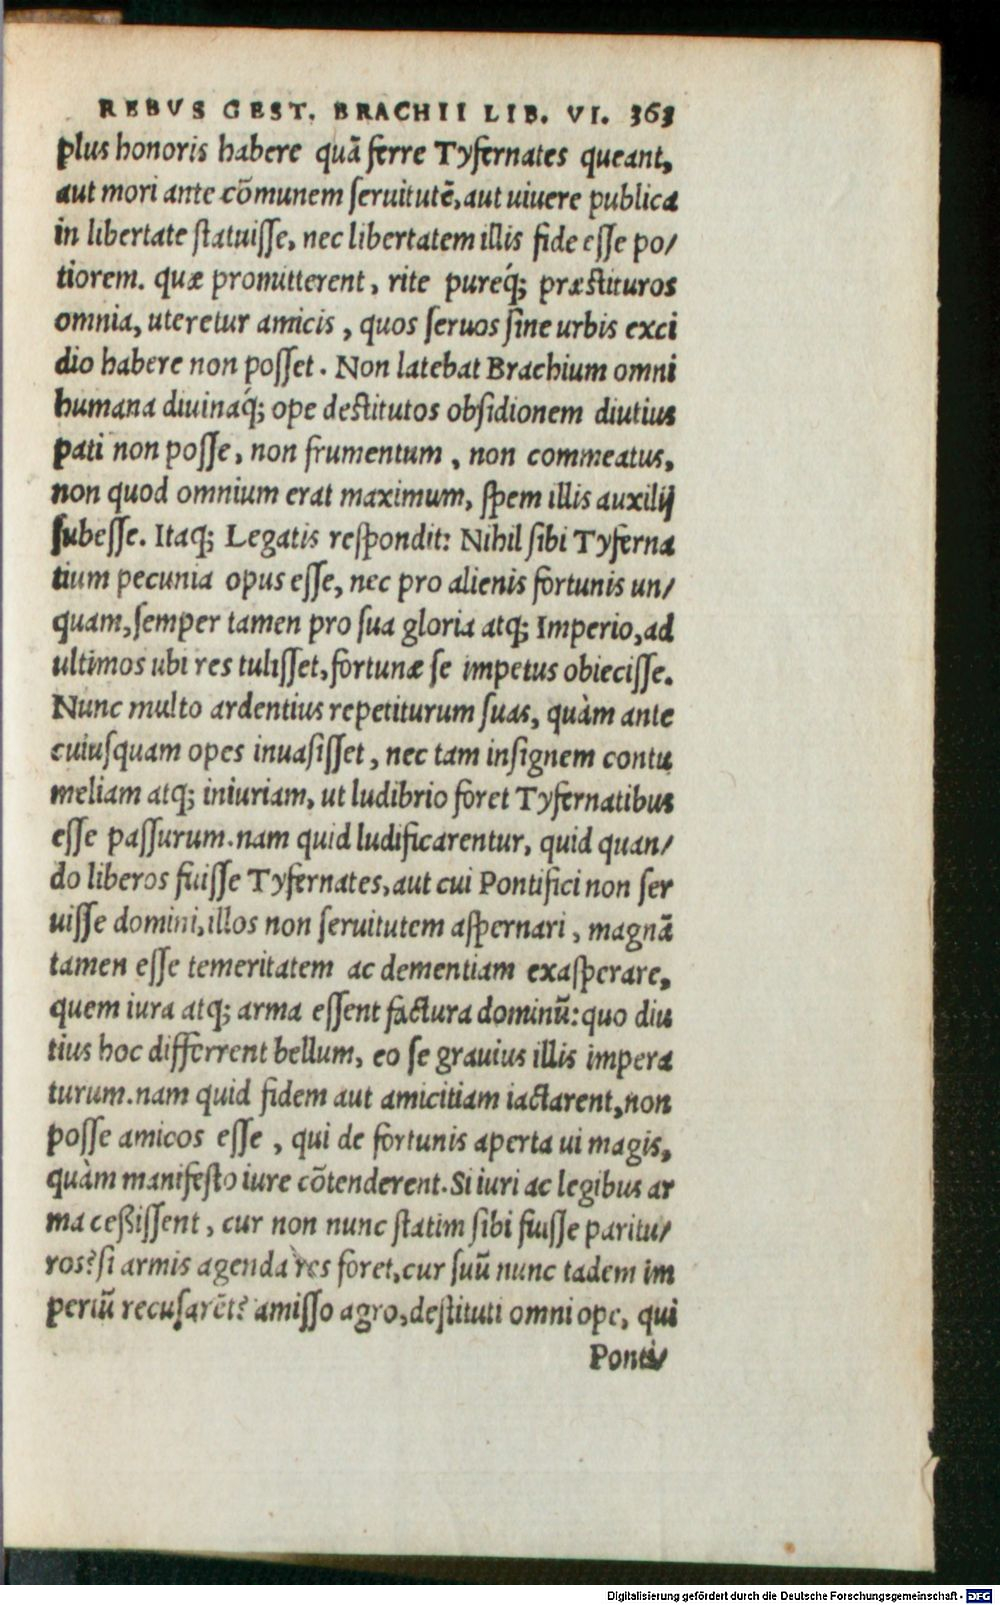 REBVS GEST. BRACHII LIB. VI. 363
plus honoris habere quã ferre Tyfernates queant,
aut mori ante cõmunem ſeruitutẽ, aut uiuere publica
in libertate ſtatuiſſe, nec libertatem illis fide eſſe po/
tiorem. quæ promitterent, rite pureq́; præſtituros
omnia, uteretur amicis, quos ſeruos ſine urbis exci
dio habere non poſſet. Non latebat Brachium omni
humana diuinaq́; ope deſtitutos obſidionem diutius
pati non poſſe, non frumentum, non commeatus,
non quod omnium erat maximum, ſpem illis auxilij
ſubeſſe. Itaq; Legatis reſpondit: Nihil ſibi Tyferna
tium pecunia opus eſſe, nec pro alienis fortunis un/
quam, ſemper tamen pro ſua gloria atq; Imperio, ad
ultimos ubi res tuliſſet, fortunæ ſe impetus obieciſſe.
Nunc multo ardentius repetiturum ſuas, quàm ante
cuiuſquam opes inuaſiſſet, nec tam inſignem contu
meliam atq; iniuriam, ut ludibrio foret Tyfernatibus
eſſe paſſurum. nam quid ludificarentur, quid quan/
do liberos fuiſſe Tyfernates, aut cui Pontifici non ſer
uiſſe domini, illos non ſeruitutem aſpernari, magnã
tamen eſſe temeritatem ac dementiam exaſperare,
quem iura atq; arma eſſent factura dominũ: quo diu
tius hoc differrent bellum, eo ſe grauius illis impera
turum. nam quid fidem aut amicitiam iactarent, non
poſſe amicos eſſe, qui de fortunis aperta ui magis,
quàm manifeſto iure cõtenderent. Si iuri ac legibus ar
ma ceßiſſent, cur non nunc ſtatim ſibi fuiſſe paritu/
ros? ſi armis agenda res foret, cur ſuũ nunc tadem im
periũ recuſarẽt? amiſſo agro, deſtituti omni ope, qui
Ponti/
Digitalisierung gefördert durch die Deutsche Forschungsgemeinschaft - DFG